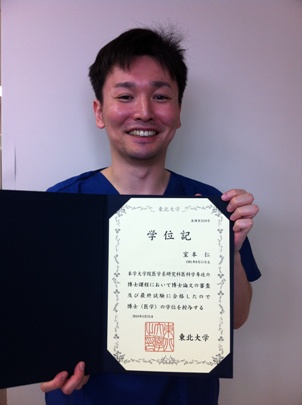 東北大学
学位記
室本 仁
本学大学院医学系研究科医科学専攻の
博士課程において博士論文の審査
及び最終試験に合格したので
博士（医学）の学位を授与する
東北大学